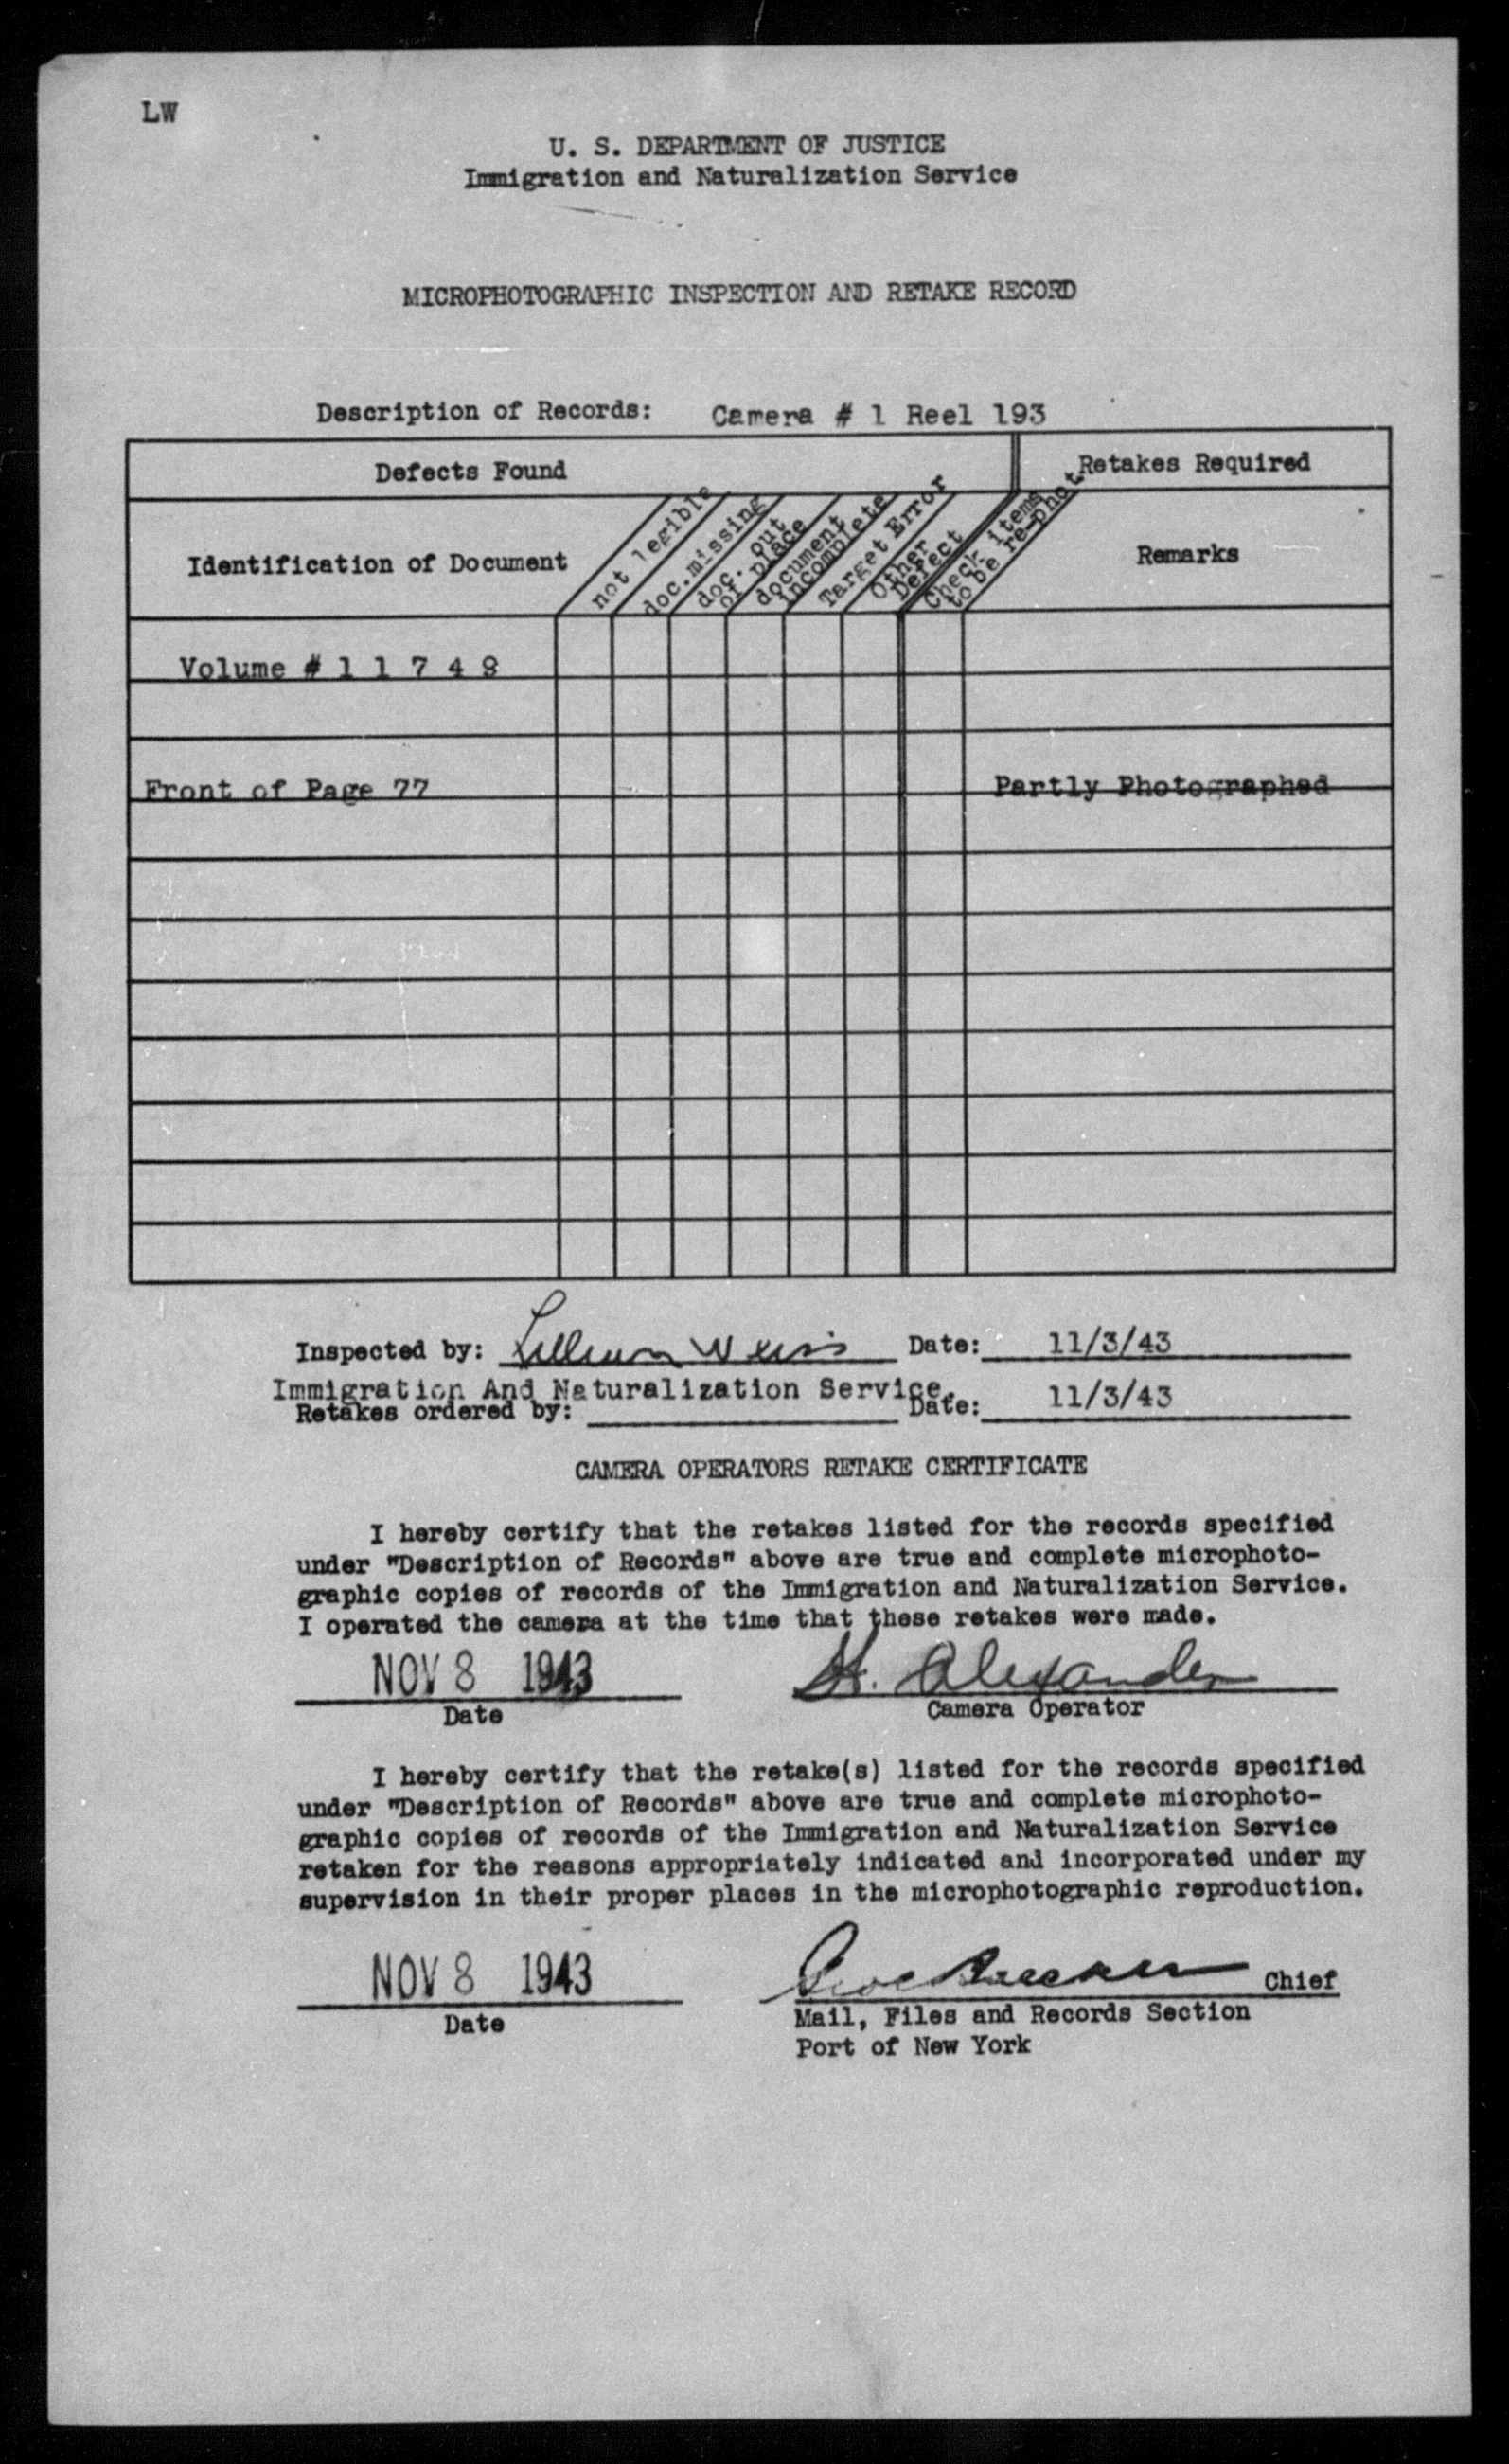 LW
U. S. DEPARTMENT OF JUSTICE
Immigration and Naturalization Service
MICROPHOTOGRAPHIC INSPECTION AND RETAKE RECORD
Description of Records: Camera # 1 Reel 193
Defects Found
Retakes Required
Identification of Document
not legible
doc.missing
doc. out
of place
document
incomplete
Target Error
Other
Defect
Check items
to be re-phot.
Remarks
Volume # 1 1 7 4 8
Front of Page 77 Partly Photographed
Inspected by: Lillian Weiss Date: 11/3/43
Immigration And Naturalization Service.
Retakes ordered by: Date: 11/3/43
CAMERA OPERATORS RETAKE CERTIFICATE
I hereby certify that the retakes listed for the records specified
under "Description of Records" above are true and complete microphoto-
graphic copies of records of the Immigration and Naturalization Service.
I operated the camera at the time that these retakes were made.
NOV 8 1943 H. Alexander
Date Camera Operator
I hereby certify that the retake(s) listed for the records specified
under "Description of Records" above are true and complete microphoto-
graphic copies of records of the Immigration and Naturalization Service
retaken for the reasons appropriately indicated and incorporated under my
supervision in their proper places in the microphotographic reproduction.
NOV 8 1943 Chief
Date Mail, Files and Records Section
Port of New York